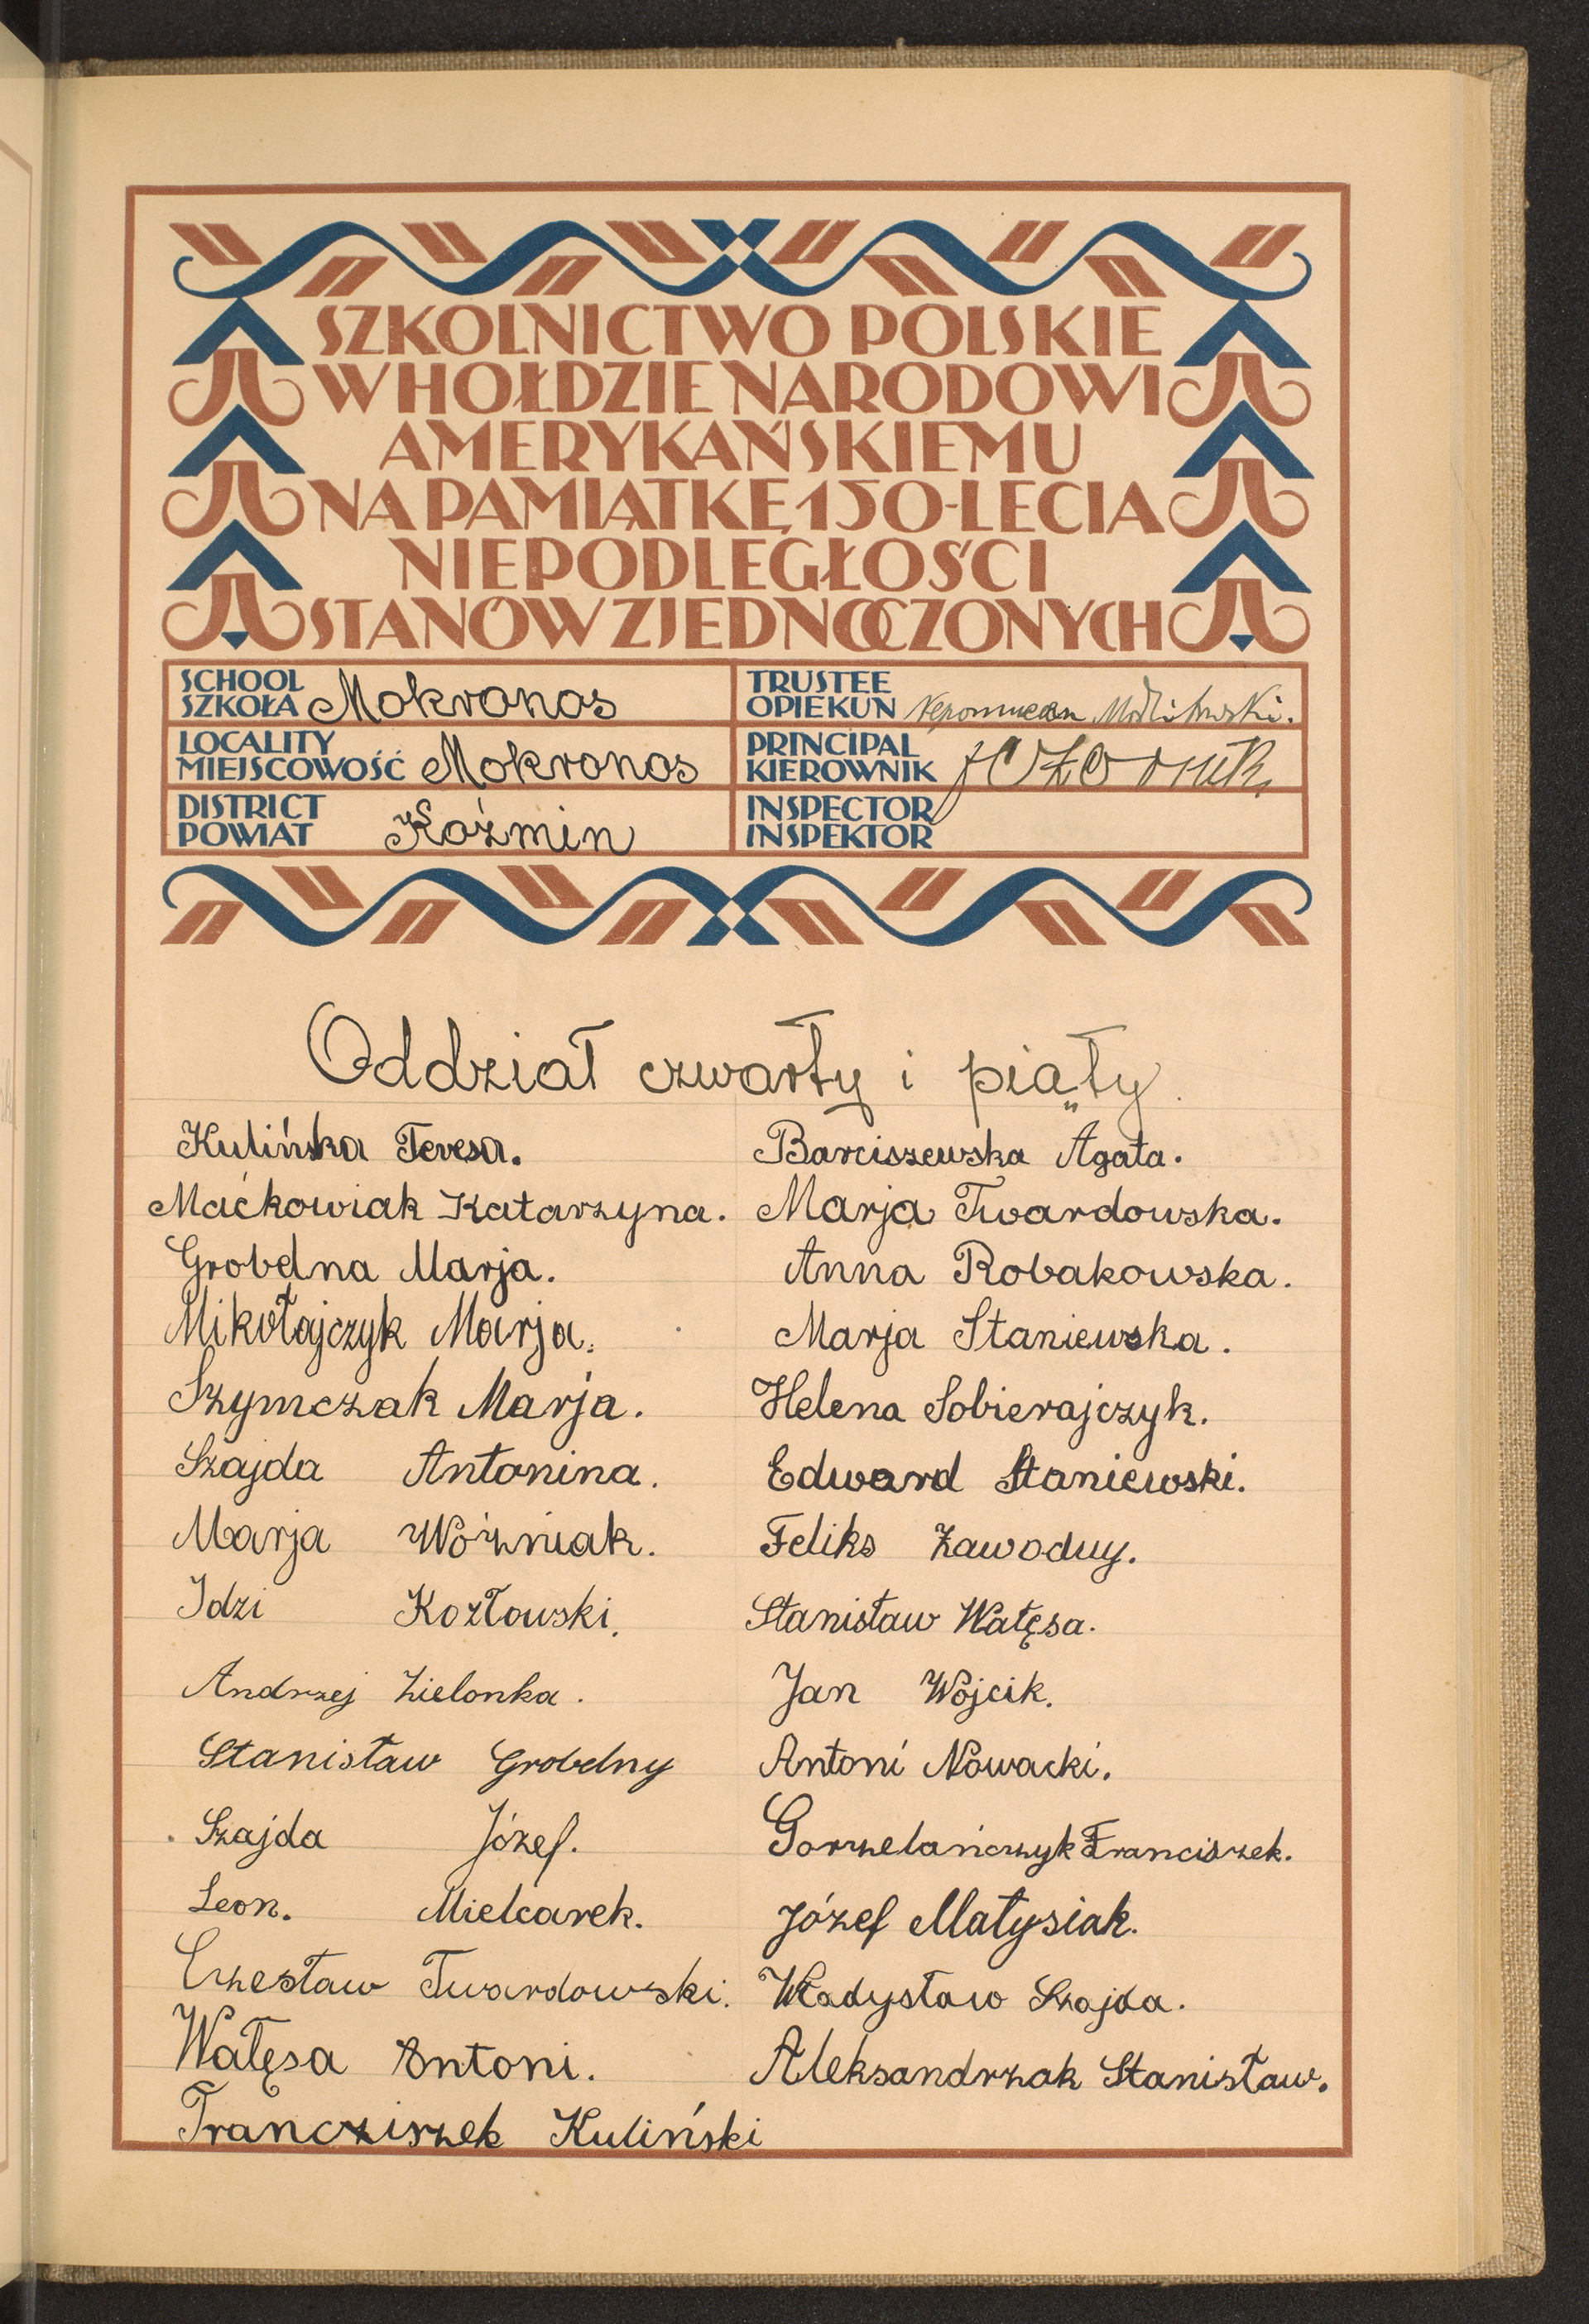 SZKOLNICTWO POLSKIE
W HOŁDZIE NARODOWI
AMERYKAŃSKIEMU
NA PAMIĄTKĘ 150-LECIA
NIEPODLEGŁOŚCI
STANÓW ZJEDNOCZONYCH
SCHOOL
SZKOŁA Mokronos
LOCALITY
MIEJSCOWOŚĆ Mokronos
DISTRICT
POWIAT Koźmin
TRUSTEE
OPIEKUN Nepomucen Modlibowski.
PRINCIPAL
KIEROWNIK
INSPECTOR
INSPEKTOR
Oddział czwarty i piąty.
Kulińska Teresa.
Maćkowiak Katarzyna.
Grobelna Marja.
Mikołajczyk Marja.
Szymczak Marja.
Szajda Antonina.
Marja Woźniak.
Idzi Kozłowski.
Andrzej Zielonka.
Stanisław Grobelny
Szajda Józef.
Leon. Mielcarek.
Czesław Twardowski.
Wałęsa Antoni.
Francziszek Kuliński
Barciszewska Agata.
Marja Twardowska.
Anna Robakowska.
Marja Staniewska.
Helena Sobierajczyk.
Edward Staniewski.
Feliks Zawodny.
Stanisław Wałęsa.
Jan Wójcik.
Antoni Nowacki.
Gorzelańczyk Franciszek.
Józef Matysiak.
Władysław Szajda.
Aleksandrzak Stanisław.